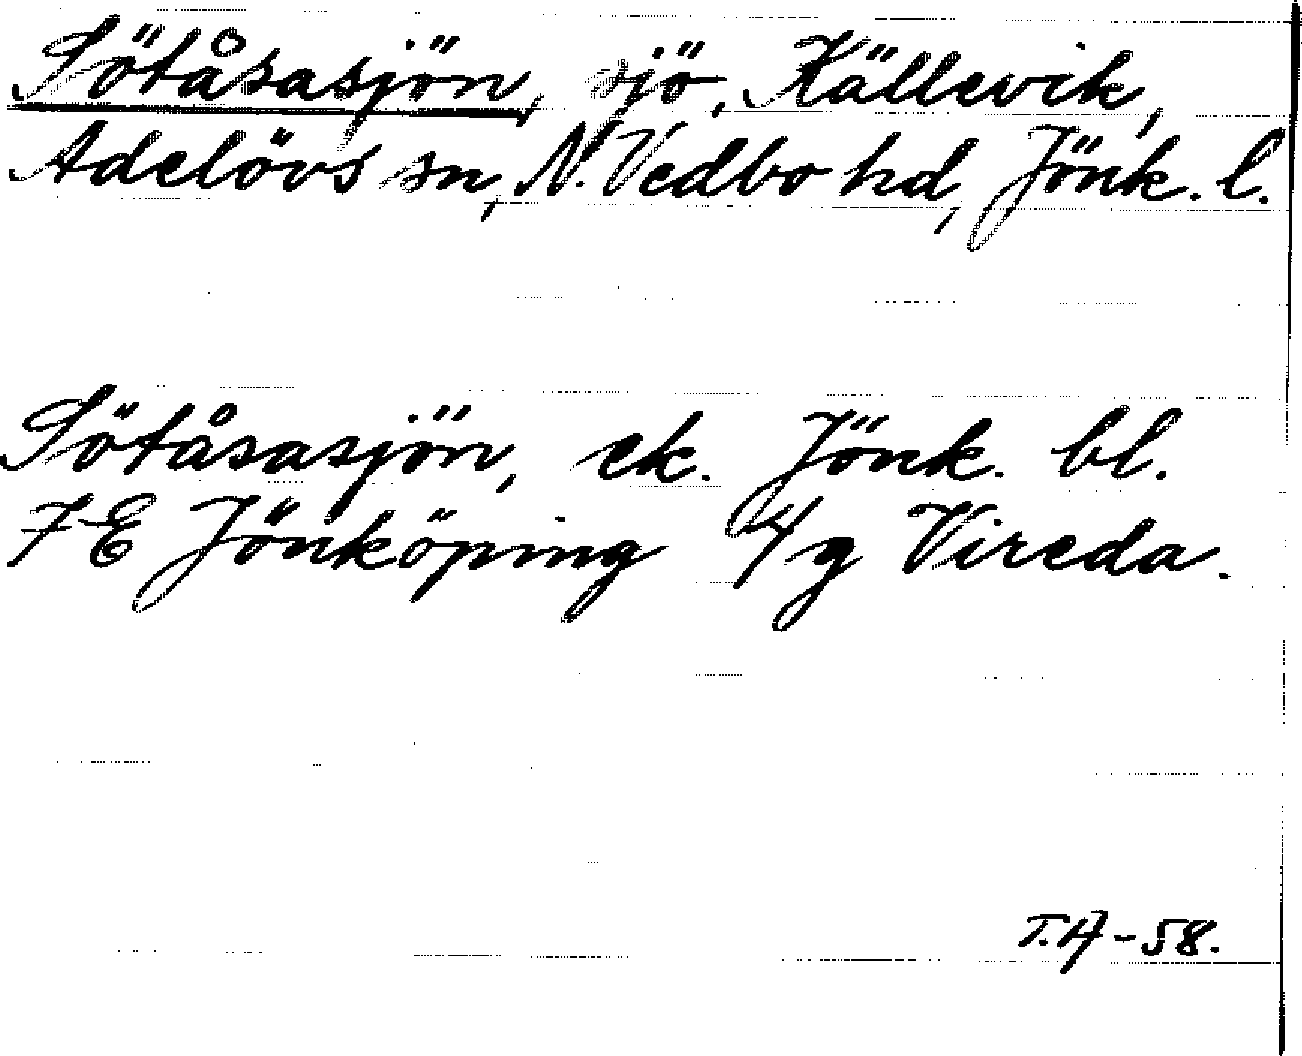 Sötåsasjön, sjö, Källevik,
Adelövs sn, N. Vedbo hd, Jönk. l.
Sötåsasjön, ek. Jönk. bl.
7 E Jönköping 4/g Vireda.
T.A-58.